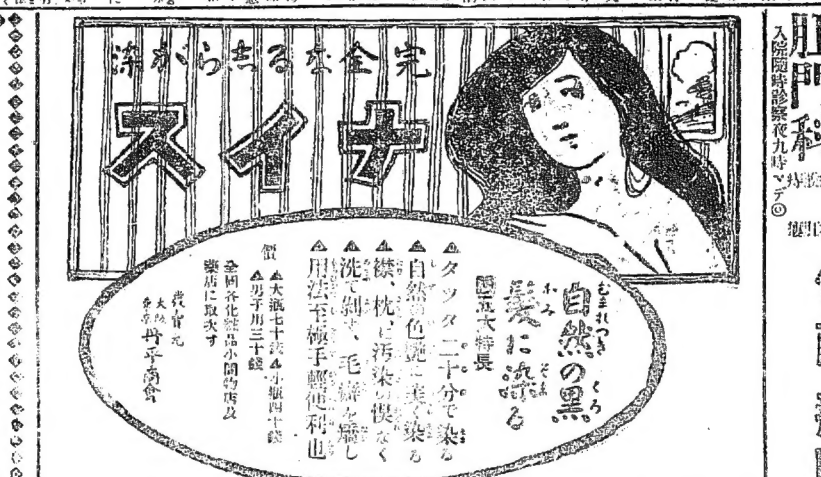 完全なるしらが染
ナイス
自然の黒
むまれつき くろ
髪に染る
かみ そま
五大特長
タッタ二十分で染る
自然の色艶に美く染る
襟、枕、に汚染の惧なく
洗て剝せず、毛癖を癒し
用法至極手輕便利也
價
大瓶七十錢 小瓶四十錢
男子用三十錢
全國各化粧品小間物店及
藥店に取次す
大阪
東京
丹平商會
肛門科
入院隨時診察夜九時マデ